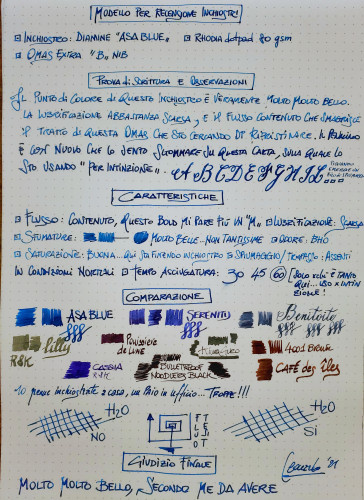 MODELLO PER RECENSIONE INCHIOSTRI
INCHIOSTRO: DIAMINE "ASA BLUE", RHODIA dotpad 80 gsm
OMAS EXTRA "B" NIB
PROVA DI SCRITTURA E OSSERVAZIONI
IL PUNTO DI COLORE DI QUESTO INCHIOSTRO È VERAMENTE MOLTO MOLTO BELLO.
LA LUBRIFICAZIONE ABBASTANZA SCARSA, E IL FLUSSO CONTENUTO CHE SMAGRISCE
IL TRATTO DI QUESTA OMAS CHE STO CERCANDO DI RIPRISTINARE. IL PENNINO
È COSÌ NUOVO CHE LO SENTO SU QUESTA CARTA, SULLA QUALE LO
STO USANDO "PER INTINZIONE"..
A B C D E F G H I L
CARATTERISTICHE
FLUSSO: CONTENUTO, QUESTO BOLD MI PARE PIÙ UN "M" LUBRIFICAZIONE: SCARSA
SFUMATURE: MOLTO BELLE... NON TANTISSIME ODORE: BHO
SATURAZIONE: BUONA... QUI STO FINENDO INCHIOSTRO SPIUMAGGIO/TRAPASSO: ASSENTI
IN CONDIZIONI NORMALI TEMPO ASCIUGATURA: 30 45 60 (SOLO xchè È TANTO
QUI... USO x INTIN
ZIONE!
COMPARAZIONE
ASA BLUE SERENITY Benitoite
Lilly R&K Poussière de Lune Kiwa-guro 4001 BRUN
CASSIA R&K BULLETPROOF NOODLER'S BLACK CAFÉ des îles
10 penne inchiostrate a casa, un paio in ufficio... TROPPE!!!
H2O
NO
FLUO
TEST
H2O
SI
GIUDIZIO FINALE
'21
MOLTO MOLTO BELLO, SECONDO ME DA AVERE